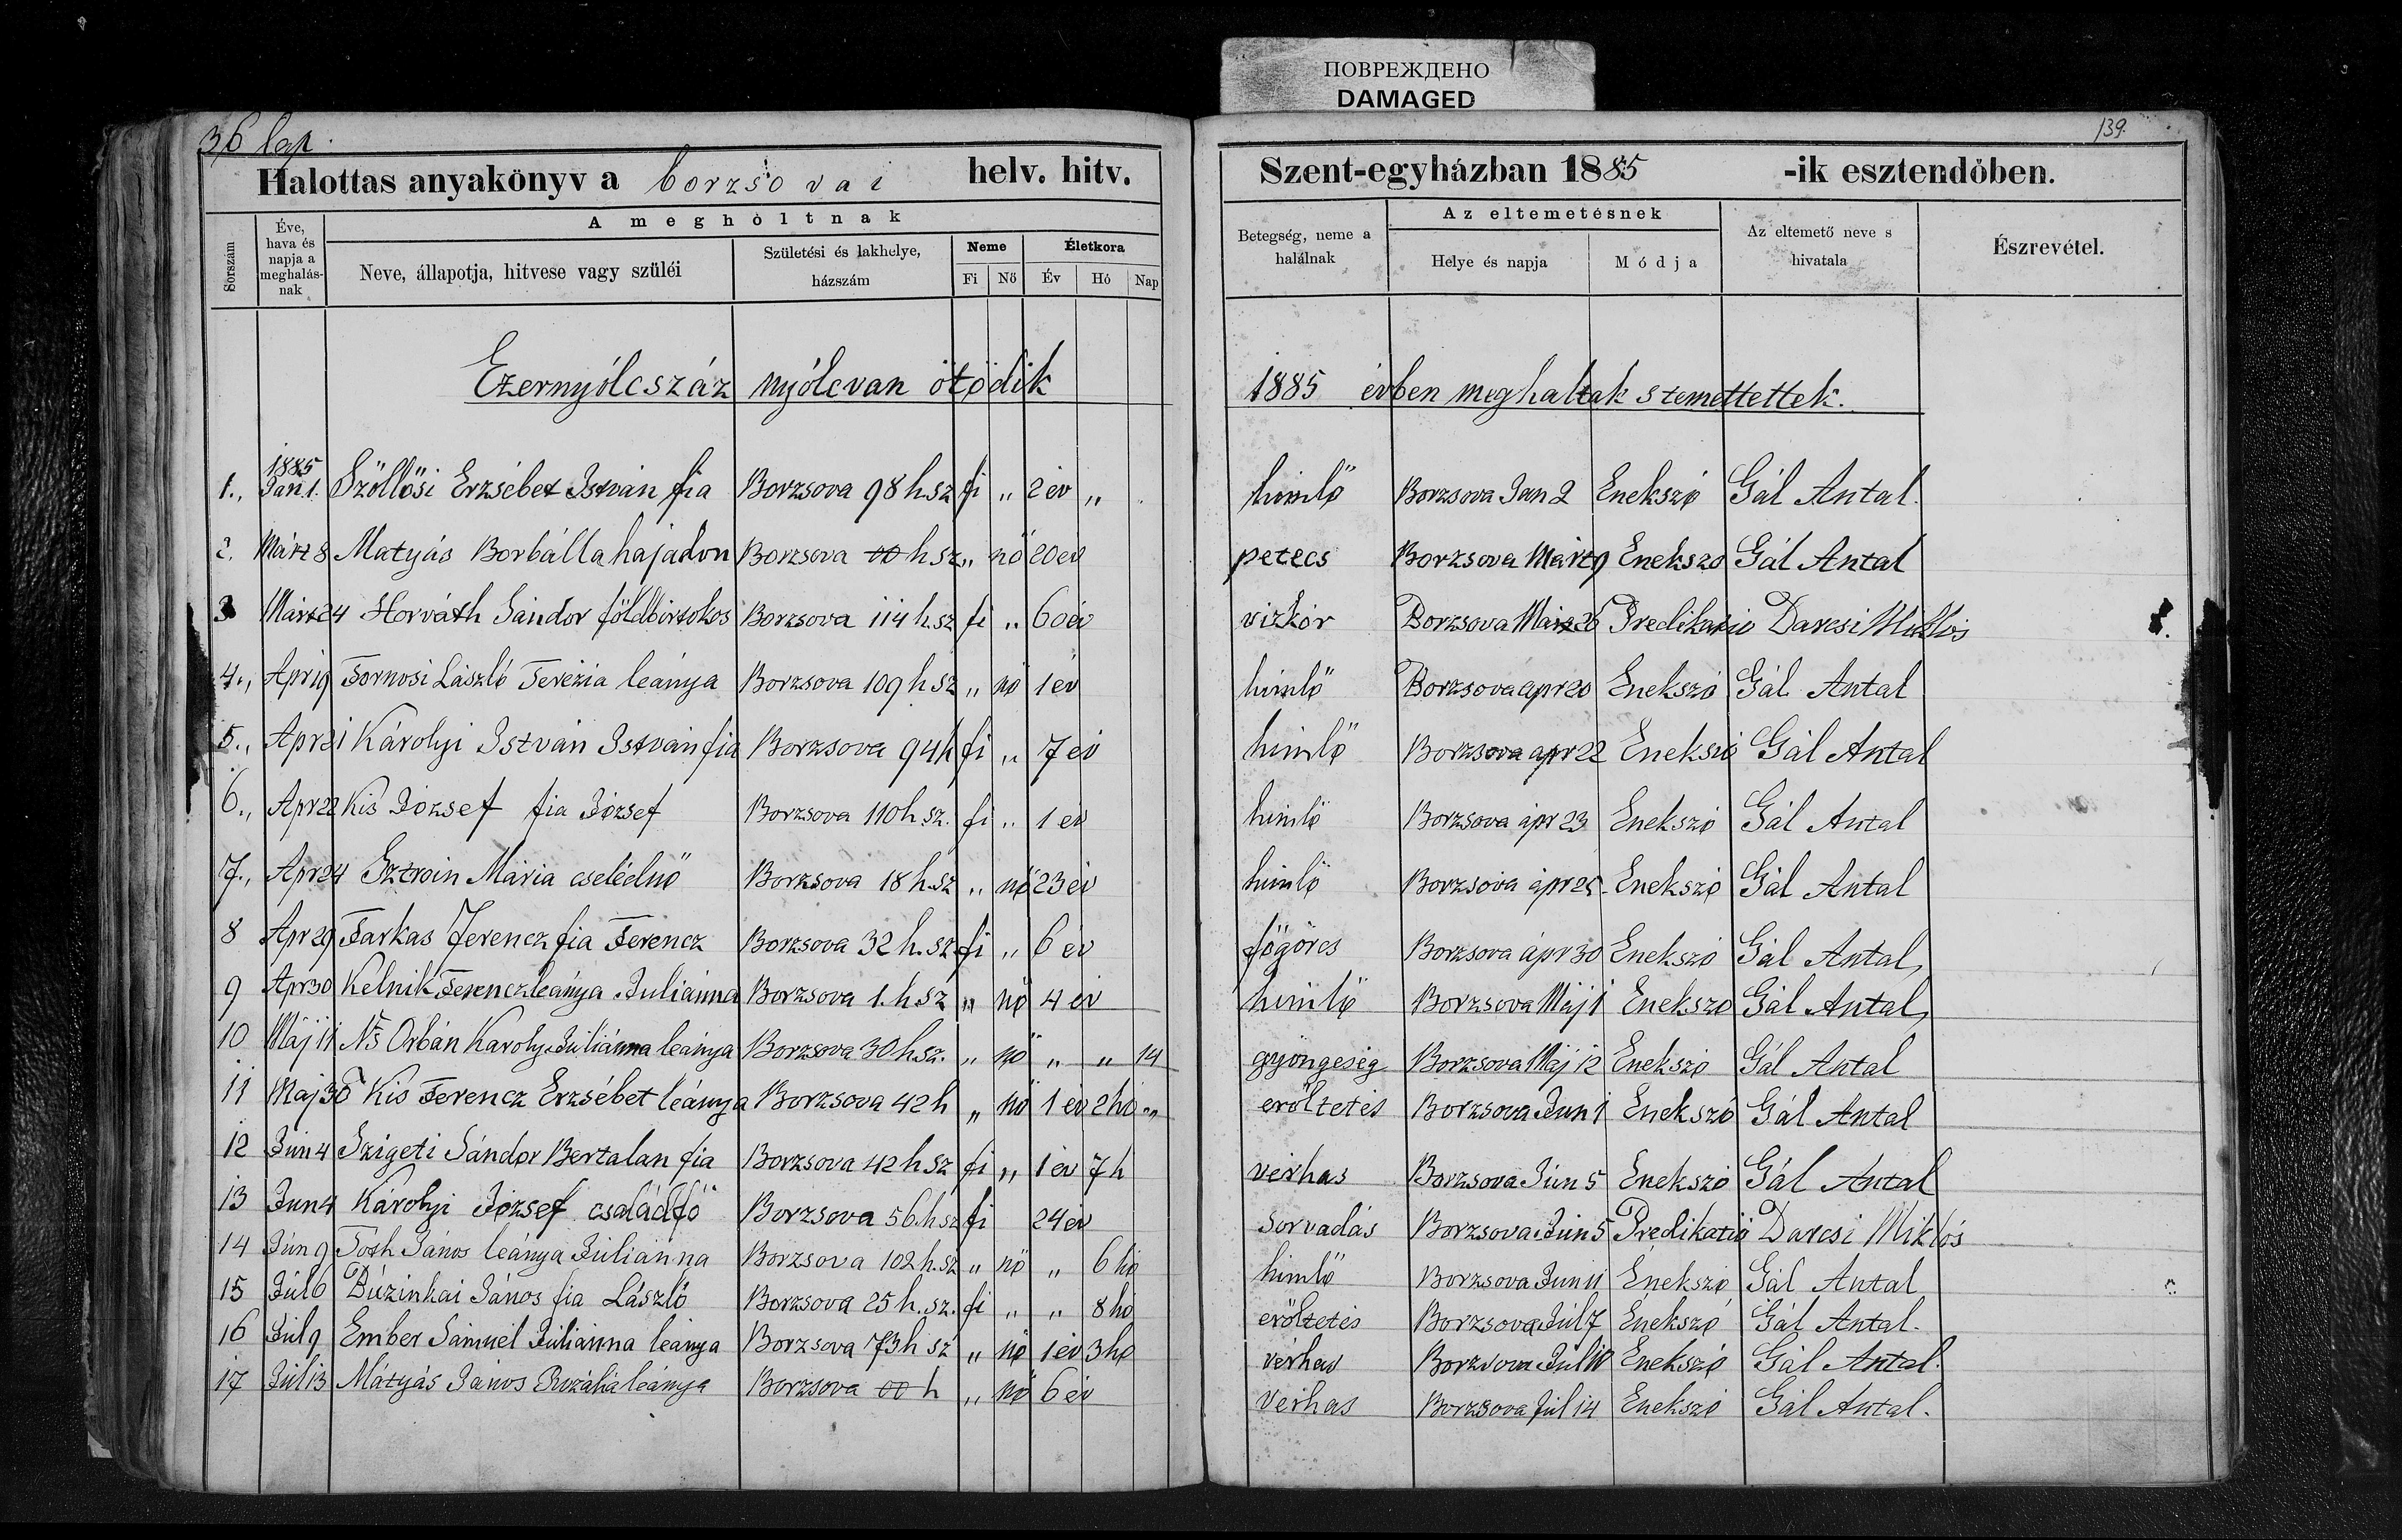 ПОВРЕЖДЕНО
DAMAGED
36 lap.
139.
Halottas anyakönyv a borzsovai helv. hitv. Szent-egyházban 1885 -ik esztendőben.
A meghóltnak
Az eltemetésnek
Sorszám
Éve, hava és napja a meghalás-nak
Neve, állapotja, hitvese vagy szüléi
Születési és lakhelye, házszám
Neme
Fi Nő
Életkora
Év Hó Nap
Betegség, neme a halálnak
Helye és napja
Módja
Az eltemető neve s hivatala
Észrevétel.
Ezernyólcszáz nyólcvan ötödik 1885 évben meghaltak s temettettek.
1., 1885 Jan 1. Szöllösi Erzsébet István fia Borzsova 98 h.sz fi „ 2 év „ himlő Borzsova Jan 2 Enekszó Gál Antal.
2. Márt 8 Matyás Borbálla hajadon Borzsova 00 h sz „ nő 20 év petecs Borzsova Márt 9 Enekszo Gál Antal
3 Márt 24 Horváth Sándor földbirtokos Borzsova 114 h.sz fi „ 60 év vizkór Borzsova Márt 26 Predikatió Darcsi Miklós
4., Apr 19 Tornosi László Terézia leánya Borzsova 109 h sz „ nő 1 év himlő Borzsova apr 20 Enekszó Gál Antal
5., Apr 21 Károlyi István István fia Borzsova 94 h fi „ 7 év himlő Borzsova apr 22 Enekszó Gál Antal
6., Apr 22 Kis József fia József Borzsova 110 h sz. fi „ 1 év himlő Borzsova ápr 23 Enekszó Gál Antal
7., Apr 24 Mária cselédnő Borzsova 18 h.sz „ nő 23 év himlő Borzsova ápr 25. Enekszó Gál Antal
8 Apr 29 Farkas Ferencz fia Ferencz Borzsova 32 h.sz fi „ 6 év főgörcs Borzsova ápr 30 Enekszó Gál Antal
9 Apr 30 Kelnik Ferencz leánya Julianna Borzsova 1. h sz „ nő 4 év himlő Borzsova Máj 1 Enekszo Gál Antal
10 Máj 11 Ns Orbán Karoly Juliánna leánya Borzsova 30 h.sz. „ nő „ „ 14 gyöngeség Borzsova Máj 12 Enekszó Gál Antal
11 Maj 30 Kis Ferencz Erzsébet leánya Borzsova 42 h „ nő 1 év 2 hó „ erőltetés Borzsova Jun 1 Enekszó Gál Antal
12 Jún 4 Szigeti Sándor Bertalan fia Borzsova 42 h sz fi „ 1 év 7 h vérhas Borzsova Jún 5 Enekszó Gál Antal
13 Jun 4 Károlyi József családfő Borzsova 56. h sz fi 24 év sorvadás Borzsova Jún 5 Predikatió Darcsi Miklós
14 Jún 9 Tóth János leánya Júlianna Borzsova 102 h.sz „ nő „ 6 hó himlő Borzsova Jun 11 Énekszó Gál Antal
15 Júl 6 Búzinkai János fia László Borzsova 25 h. sz. fi „ „ 8 hó erőltetés Borzsova Júl 7 Énekszó Gál Antal.
16 Júl 9 Ember Sámuel Júliánna leánya Borzsova 73 h sz „ nő 1 év 3 hó vérhas Borzsova Júl 10 Énekszó Gál Antal.
17 Júl 13 Mátyás János Rozália leánya Borzsova 00 h „ nő 6 év vérhas Borzsova Júl 14 Enekszó Gál Antal.